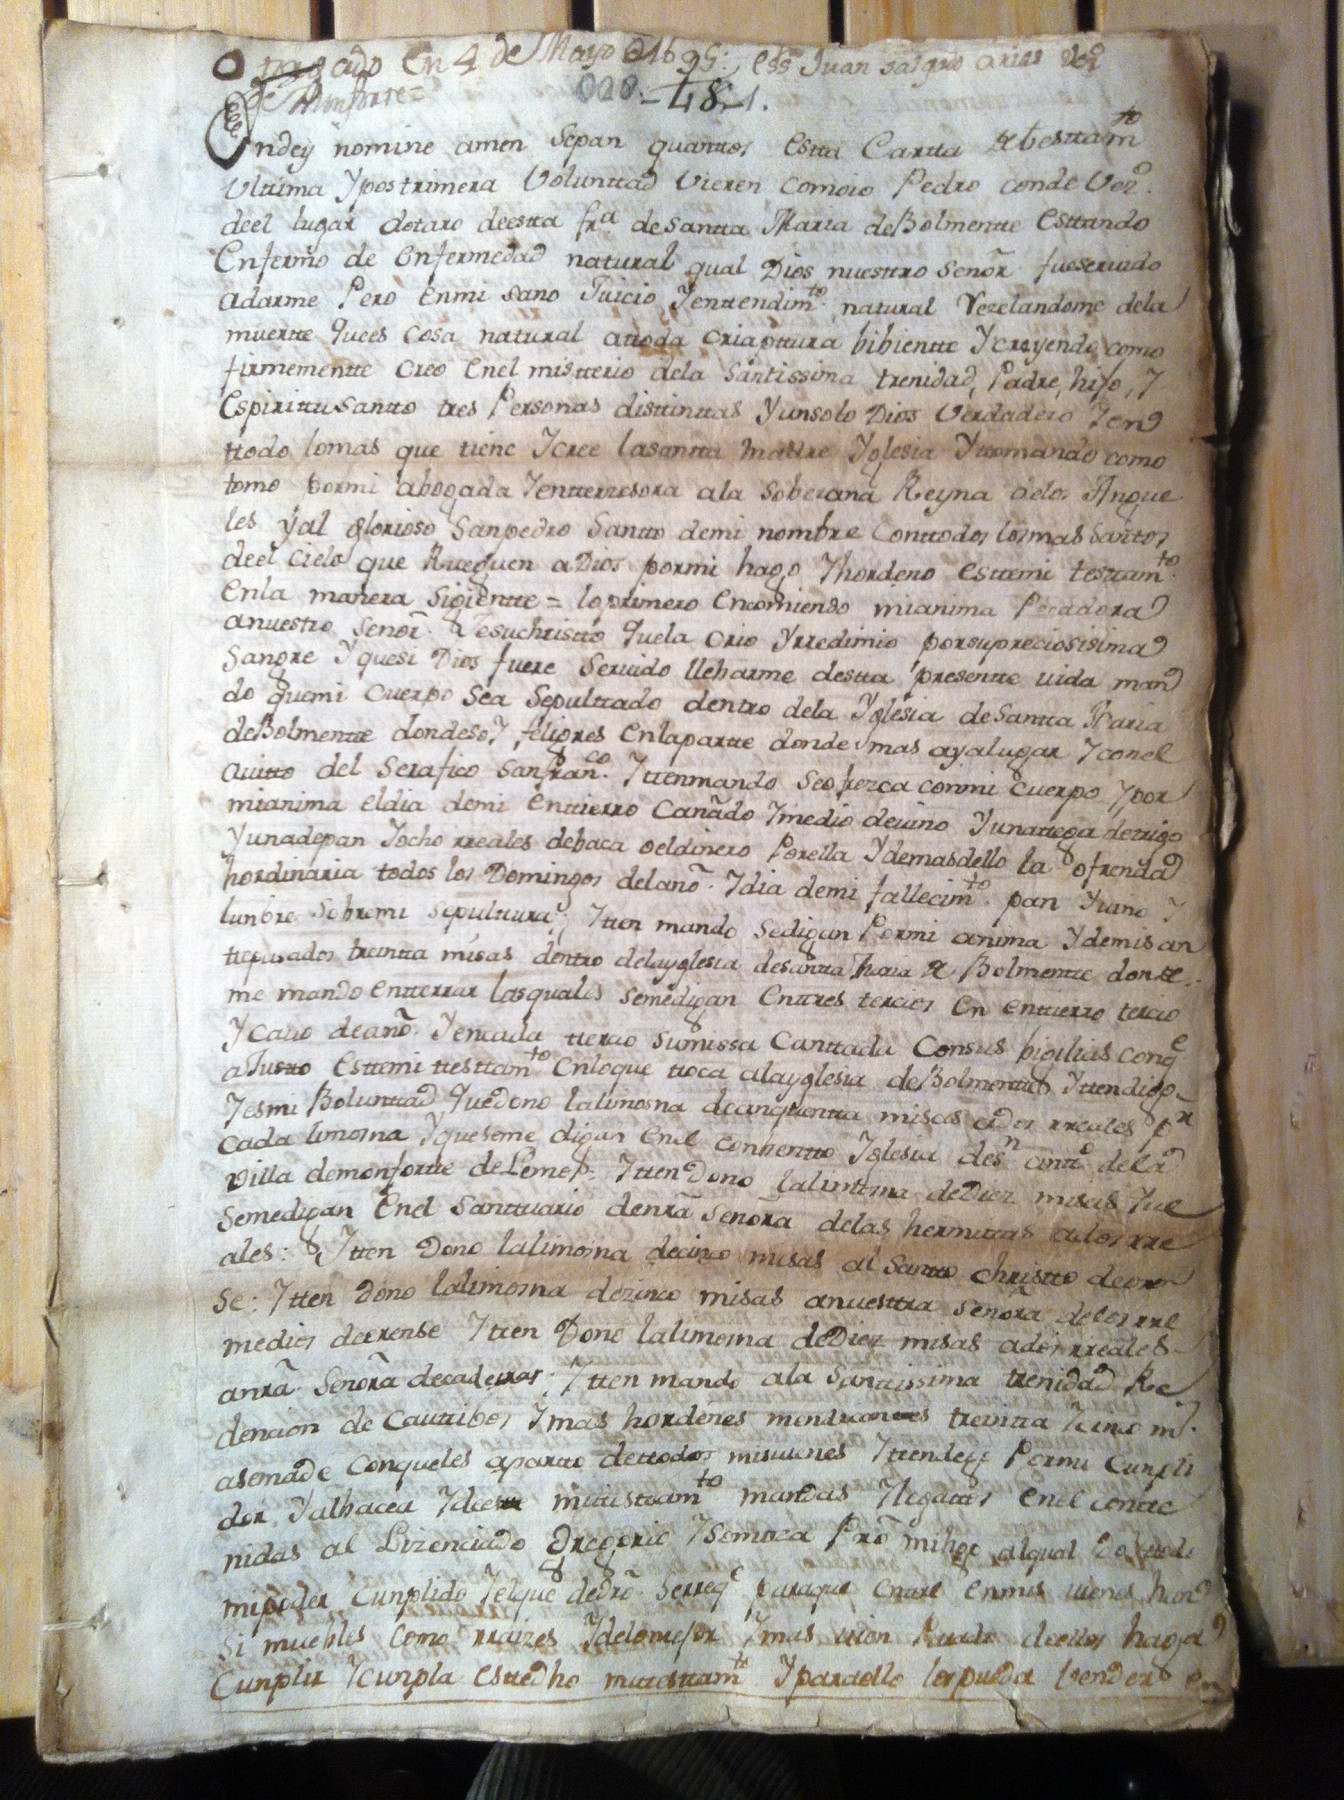 en 4 de Mayo de 1695: essno Juan salgado arias vezo
de Monforte=
028 - 48 - 1.
Endey nomine amen Sepan quanttos estta Cartta de testtamto
Ultima y postrimera Voluntad Vieren como io Pedro conde Vezo.
deel lugar dotaro deestta fra de santta Maria de Bolmentte esttando
enfermo de enfermedad natural qual Dios nuesttro señor fue seruido
adarme Pero en mi sano Juicio y entendimto natural Rezelandome dela
muertte que es cosa natural a ttoda criapttura bibientte y creyendo como
firmementte creo en el mistterio dela santissima trenidad, Padre, hijo, y
espirittu santto tres Personas disttinttas y un solo Dios Verdadero y en
ttodo lo mas que tiene y cree la santta madre yglesia y ttomando como
tomo por mi abogada y entterzesora a la soberana Reyna delos Angue
les y al glorioso san pedro santto de mi nombre con ttodos los mas santtos
deel cielo que Rueguen a Dios por mi hago y hordeno estte mi testtamto.
en la manera sigientte = lo primero encomiendo mi anima Pecadora
a nuestro señor Jesuchristto que la crio y rredimio por su preciosisima
sangre y que si Dios fuere seruido lleharme destta presentte vida man
do que mi cuerpo sea sepulttado dentro dela yglesia de santta Maria
de Bolmentte donde soy feligres en la partte donde mas aya lugar y con el
auitto del serafico san franco. Ytten mando se ofrezca con mi cuerpo y por
mi anima el dia de mi enttierro cañado y medio de uino y una ttega de trigo
y una de pan y ocho rreales de baca o el dinero Por ella y demas dello la ofrenda
hordinaria todos los Domingos del año y dia de mi fallecimto. pan y uino y
lunbre sobre mi sepulttura; Ytten mando se digan Por mi anima y de mis an
trepasados treintta misas dentro dela yglesia de santta Maria de Bolmentte donde
me mando entterrar las quales se me digan en ttres tercios en enttierro tercio
y cauo de año y en cada ttercio su missa canttada con sus bigilias con qe
a Justto estte mi ttesttamto en lo que ttoca a la yglesia de Bolmentte y tten digo
y es mi Boluntad que dono la limosna de cinquentta misas a dos rreales pr
cada limosna y que se me digan en el conbentto Yglesia de sn antto de la
villa de monfortte de Lemos. Itten Dono la limosna de Diez misas que
se me digan en el santtuario de nra señora de las hermittas a dos rre
ales: Ytten Dono la limosna de cinco misas al santto christto de oren
se: Itten Dono la limosna de zinco misas a nuesttra señora de los rre
medios de orense Itten Dono la limosna de Diez misas a dos rreales
a nra señora de cadeiras: Ytten mando a la santtissima trenidad Re
dencion de cauttibos y mas hordenes mendicanttes treintta y cinco m.
con que les apartto de ttodos mis uienes Itten dejo Por mi cunpli
dor y albacea y de estte mi testtamto mandas y legattos en el contte
nidas al Lizenciado Gregorio Pro mi hijo, al qual Doy todo
mi poder cunplido y el que de dro. se rreqe para que entre en mis uienes
si muebles como rraizes y de lo mejor y mas uien parado de ellos haga
cunplir y cunpla este dho mi testtamto y para ello los pueda bender en